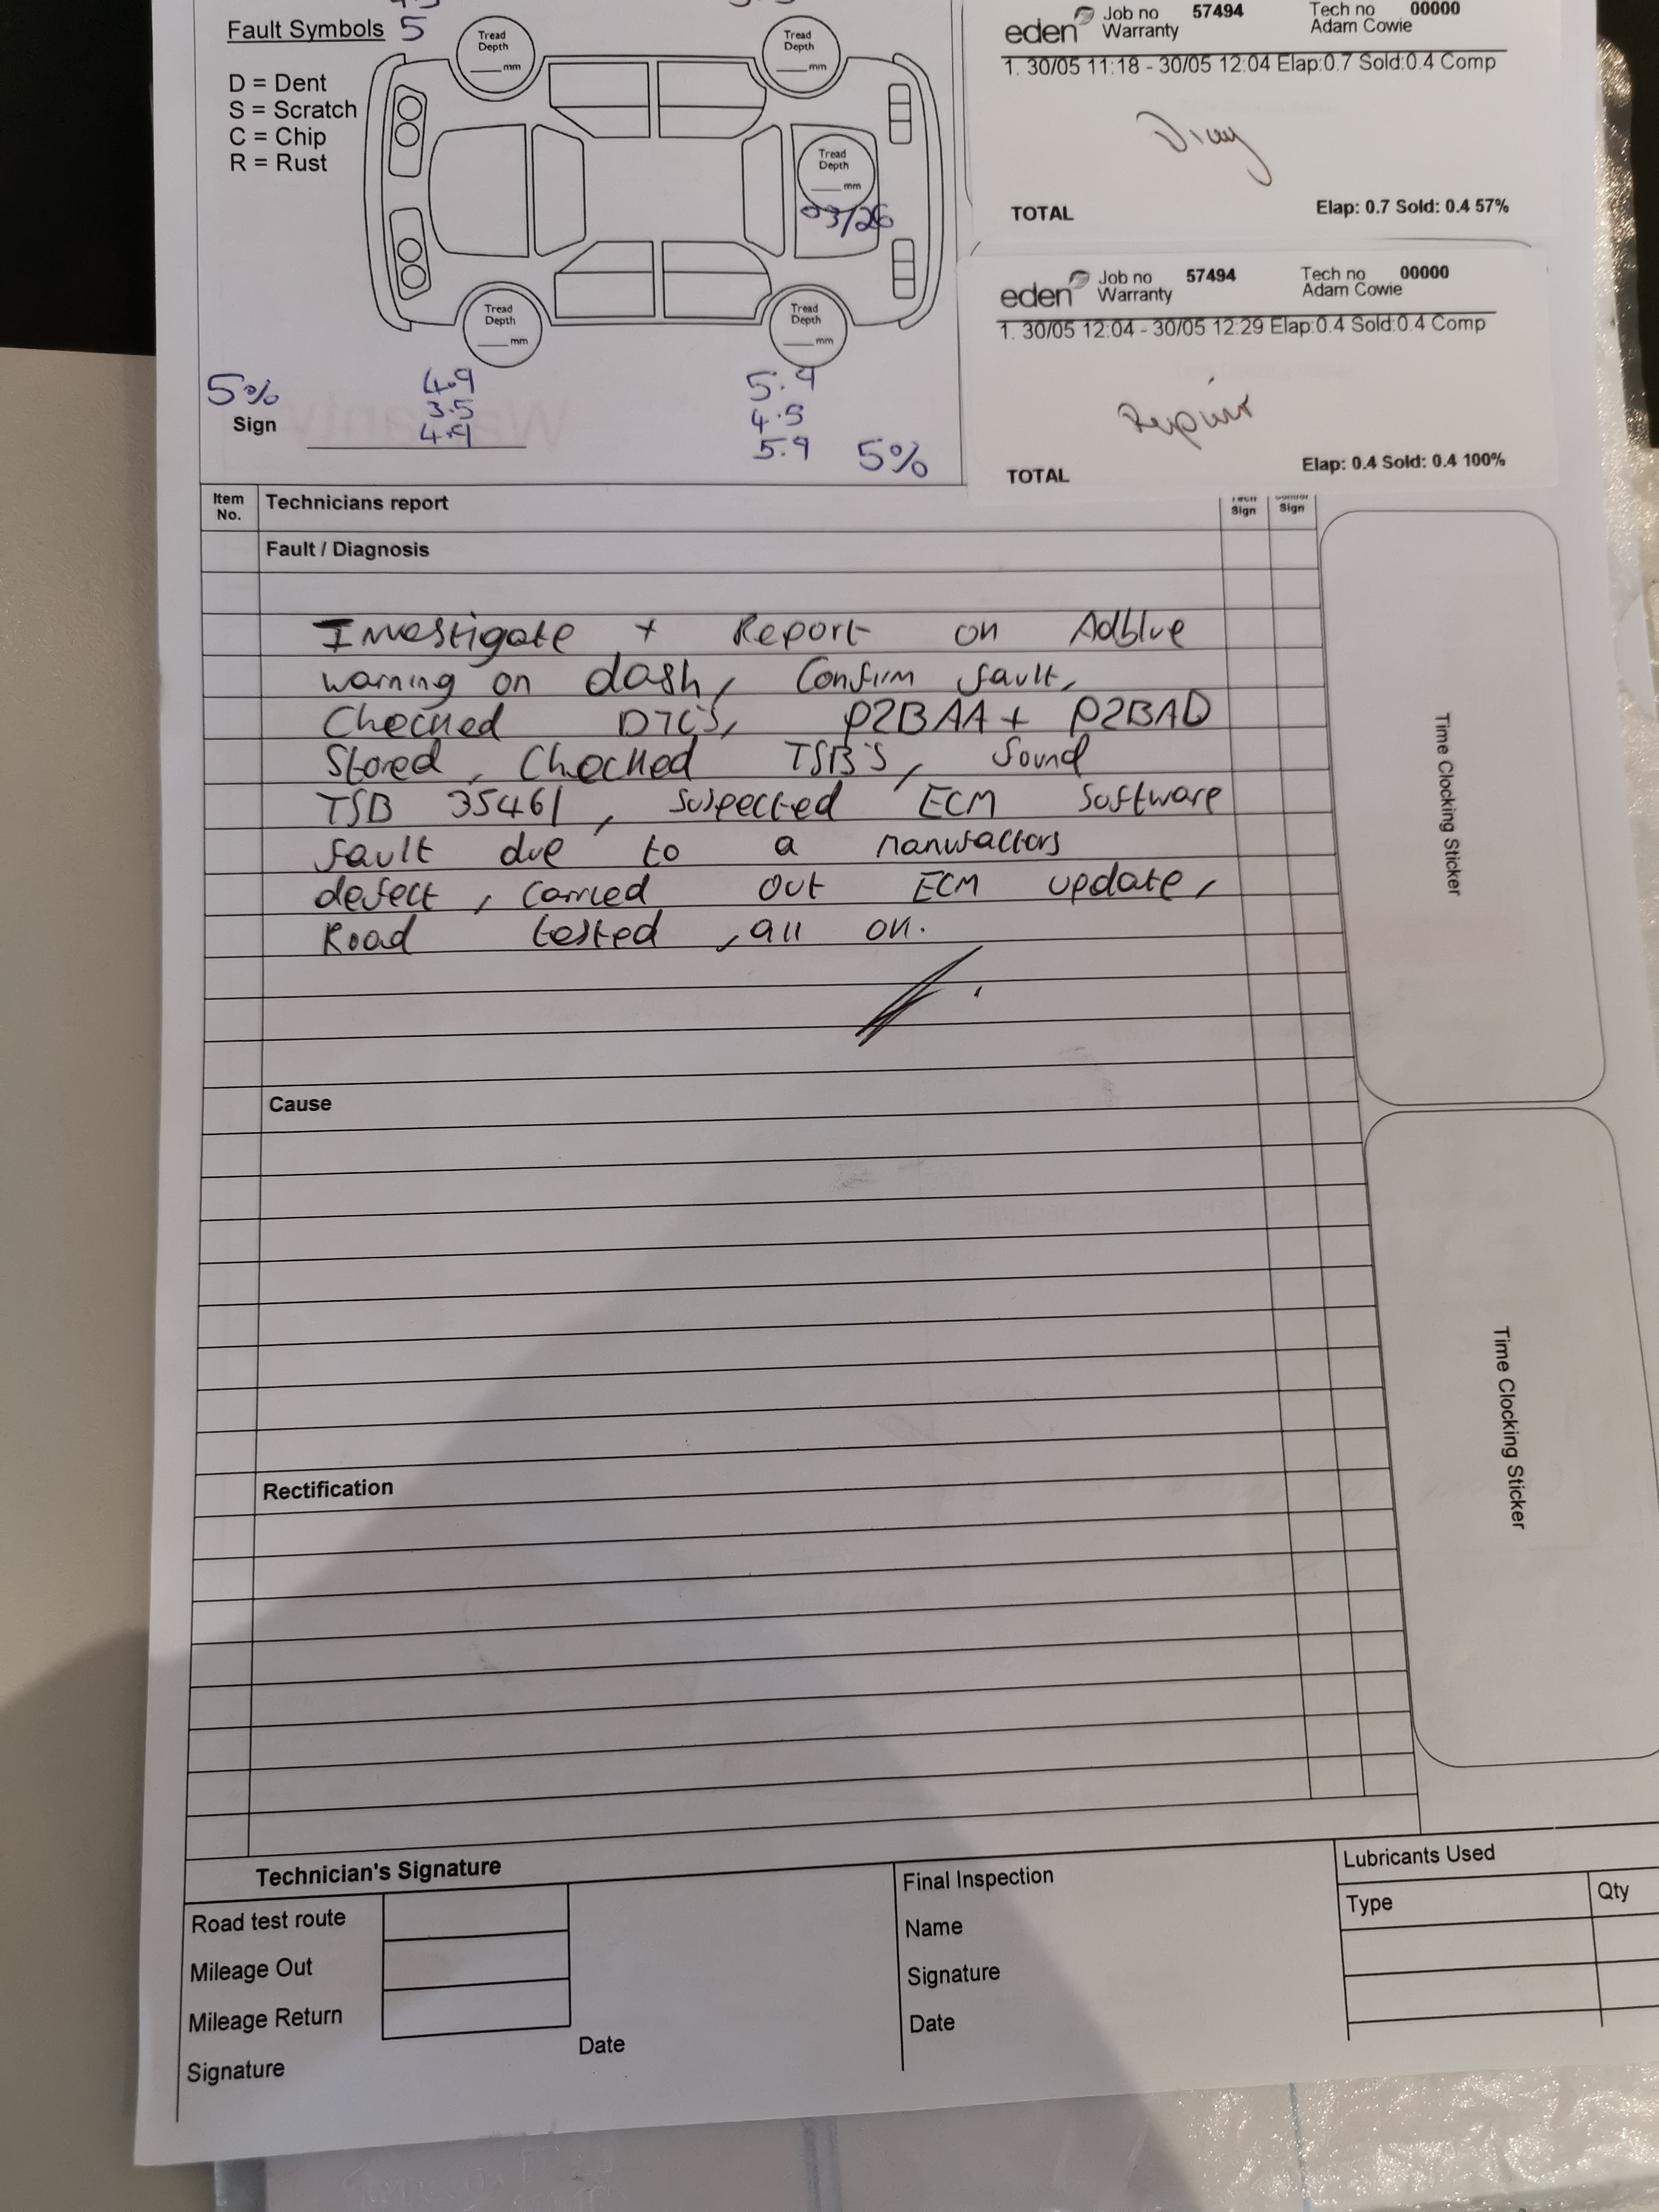 Fault Symbols 5
D = Dent
S = Scratch
C = Chip
R = Rust
Tread Depth ___ mm
Tread Depth ___ mm
Tread Depth ___ mm
03/26
Tread Depth ___ mm
Tread Depth ___ mm
5%
4.9
3.5
4.9
5.9
4.5
5.9
5%
Sign
eden Job no 57494 Tech no 00000
Warranty Adam Cowie
1. 30/05 11:18 - 30/05 12:04 Elap:0.7 Sold:0.4 Comp
Diag
TOTAL Elap: 0.7 Sold: 0.4 57%
eden Job no 57494 Tech no 00000
Warranty Adam Cowie
1. 30/05 12:04 - 30/05 12:29 Elap:0.4 Sold:0.4 Comp
Repair
TOTAL Elap: 0.4 Sold: 0.4 100%
Item No. Technicians report Tech Sign Sign
Fault / Diagnosis
Investigate + Report on Adblue
warning on dash, Confirm fault,
Checked DTC's, P2BAA + P2BAD
Stored, Checked TSB's, found
TSB 35461, Suspected ECM Software
fault due to a manufactors
defect, carried out ECM update,
Road tested, all ok.
Cause
Rectification
Time Clocking Sticker
Time Clocking Sticker
Technician's Signature
Road test route
Mileage Out
Mileage Return
Signature
Date
Final Inspection
Name
Signature
Date
Lubricants Used
Type Qty